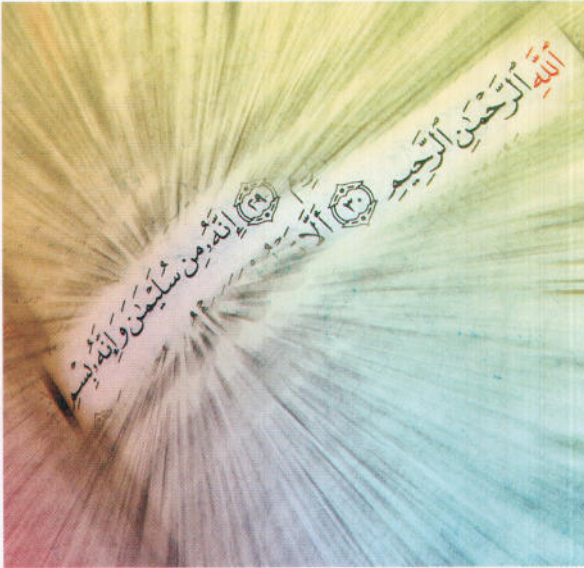 ۲۹ إِنَّهُۥ مِن سُلَيْمَٰنَ وَإِنَّهُۥ بِسْمِ
ٱللَّهِ ٱلرَّحْمَٰنِ ٱلرَّحِيمِ ۳۰